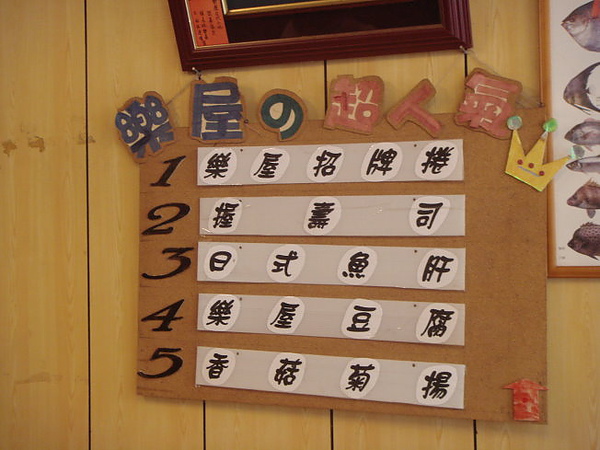 樂屋の超人氣
1 樂屋招牌捲
2 握壽司
3 日式魚肝
4 樂屋豆腐
5 香菇菊揚